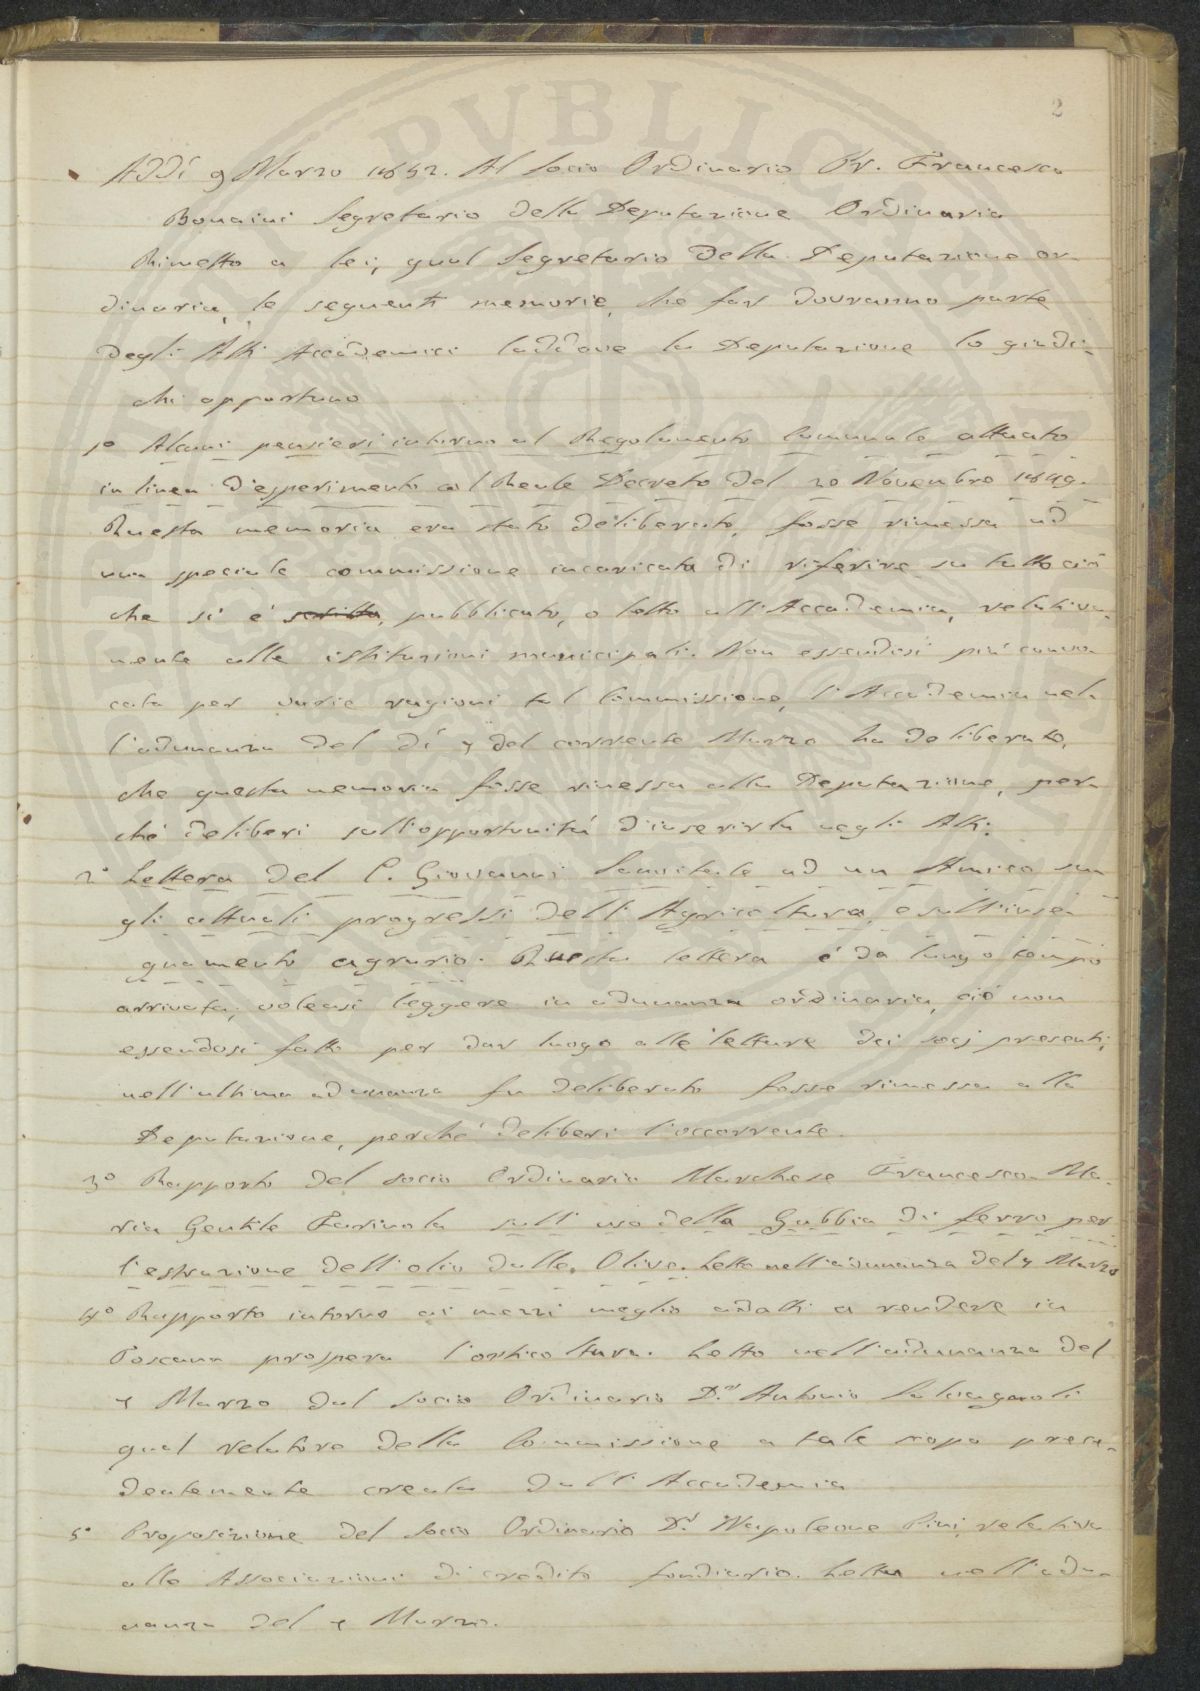 2
Addí 9 Marzo 1852. Al Socio Ordinario Pr. Francesco
Bonaini Segretario della Deputazione Ordinaria
Rimetto a lei, qual Segretario della Deputazione or-
dinaria, le seguenti memorie, che far dovranno parte
degli Atti Accademici laddove la Deputazione lo giudi-
chi opportuno
1º Alcuni pensieri intorno al Regolamento Comunale attuato
in linea d'esperimento col Reale Decreto del 20 Novembre 1849.
Questa memoria era stato deliberato, fosse rimessa ad
una speciale commissione incaricata di riferire su tutto ciò
che si é scritto, pubblicato, o letto all'Accademia, relativa-
mente alle istituzioni municipali. Non essendosi piú convo-
cata per varie ragioni tal Commissione, l'Accademia nel-
l'adunanza del dí 7 del corrente Marzo ha deliberato,
che questa memoria fosse rimessa alla Deputazione, per-
ché deliberi sull'opportunitá d'inserirla negli Atti.
2º Lettera del C. Giovanni Sanvitale ad un Amico su-
gli attuali progressi dell'Agricoltura, e sull'inse-
gnamento agrario. Questa lettera é da lungo tempo
arrivata; voleasi leggere in adunanza ordinaria, ció non
essendosi fatto per dar luogo alle letture dei socj presenti,
nell'ultima adunanza fu deliberato fosse rimessa alla
Deputazione, perché deliberi l'occorrente.
3º Rapporto del socio Ordinario Marchese Francesco Ma-
ria Gentile Farinola sull'uso della Gabbia di ferro per
l'estrazione dell'olio dalle Olive. Letto nell'adunanza del 7 Marzo
4º Rapporto intorno ai mezzi meglio adatti a rendere in
Toscana prospera l'orticoltura. Letto nell'adunanza del
7 Marzo dal socio Ordinario D.r Antonio Salvagnoli
qual relatore della Commissione a tale scopo prece-
dentemente creata dall'Accademia
5º Proposizione del Socio Ordinario D.r Napoleone Pini, relativa
alle Associazioni di credito fondiario. Letta nell'adu-
nanza del 7 Marzo.